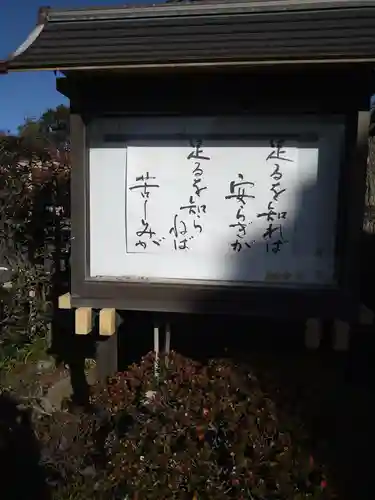 足るを知れば
安らぎが
足るを知らねば
苦しみが